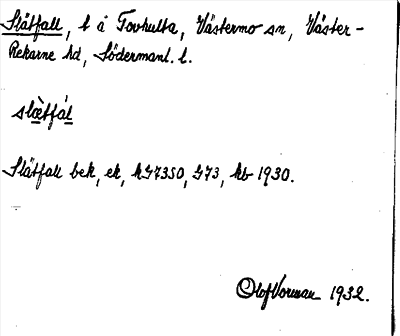 Slätfall, t å Tovhulta, Västermo sn, Väster-
Rekarne hd, Södermanl. l.
slæ̀tfál
Slätfall bek, ek, hG7350, G73, kb 1930.
Olof Vorman 1932.